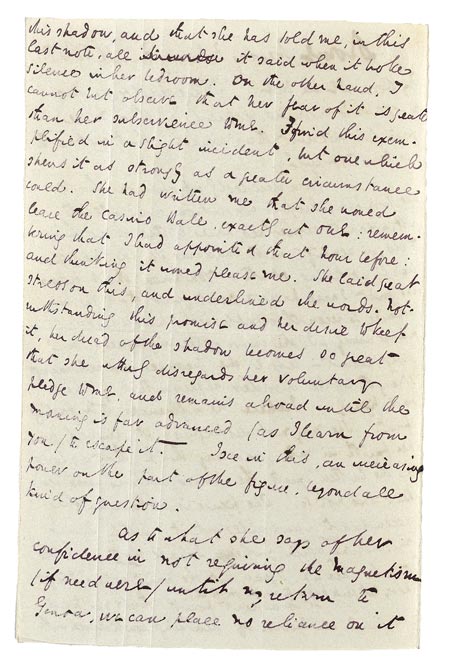 this shadow, and that she has told me, in this
last note, all it said when it broke
silence in her bedroom. On the other hand, I
cannot but observe that her fear of it is greater
than her subservience to me. I find this exem-
plified in a slight incident, but one which
shews it as strongly as a greater circumstance
could. She had written me that she would
leave the Casino Ball, exactly at one: remem-
bering that I had appointed that hour before:
and thinking it would please me. She laid great
stress on this, and underlined the words. Not-
withstanding this promise and her desire to keep
it, her dread of the shadow becomes so great
that she utterly disregards her voluntary
pledge to me, and remains abroad until the
morning is far advanced (as I learn from
you) to escape it. I see in this, an increasing
power on the part of the figure, beyond all
kind of question.
As to what she says of her
confidence in not requiring the magnetism
(if need were) until my return to
Genoa, we can place no reliance on it